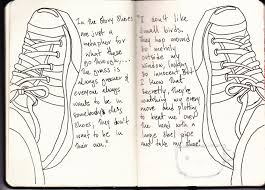 In the Story Shoes
are just a
metaphor for
what these
go through...
the grass is
always greener &
everyone always
wants to be in
somebody else's
shoes, they don't
want to be in
their own."
"I don't like
small birds.
they hop around
so merrily
outside my
window, looking
so innocent. But
I know that
secretly, they're
watching my every
move and plotting
to beat me over
the head with a
large steel pipe
and take my shoe!"